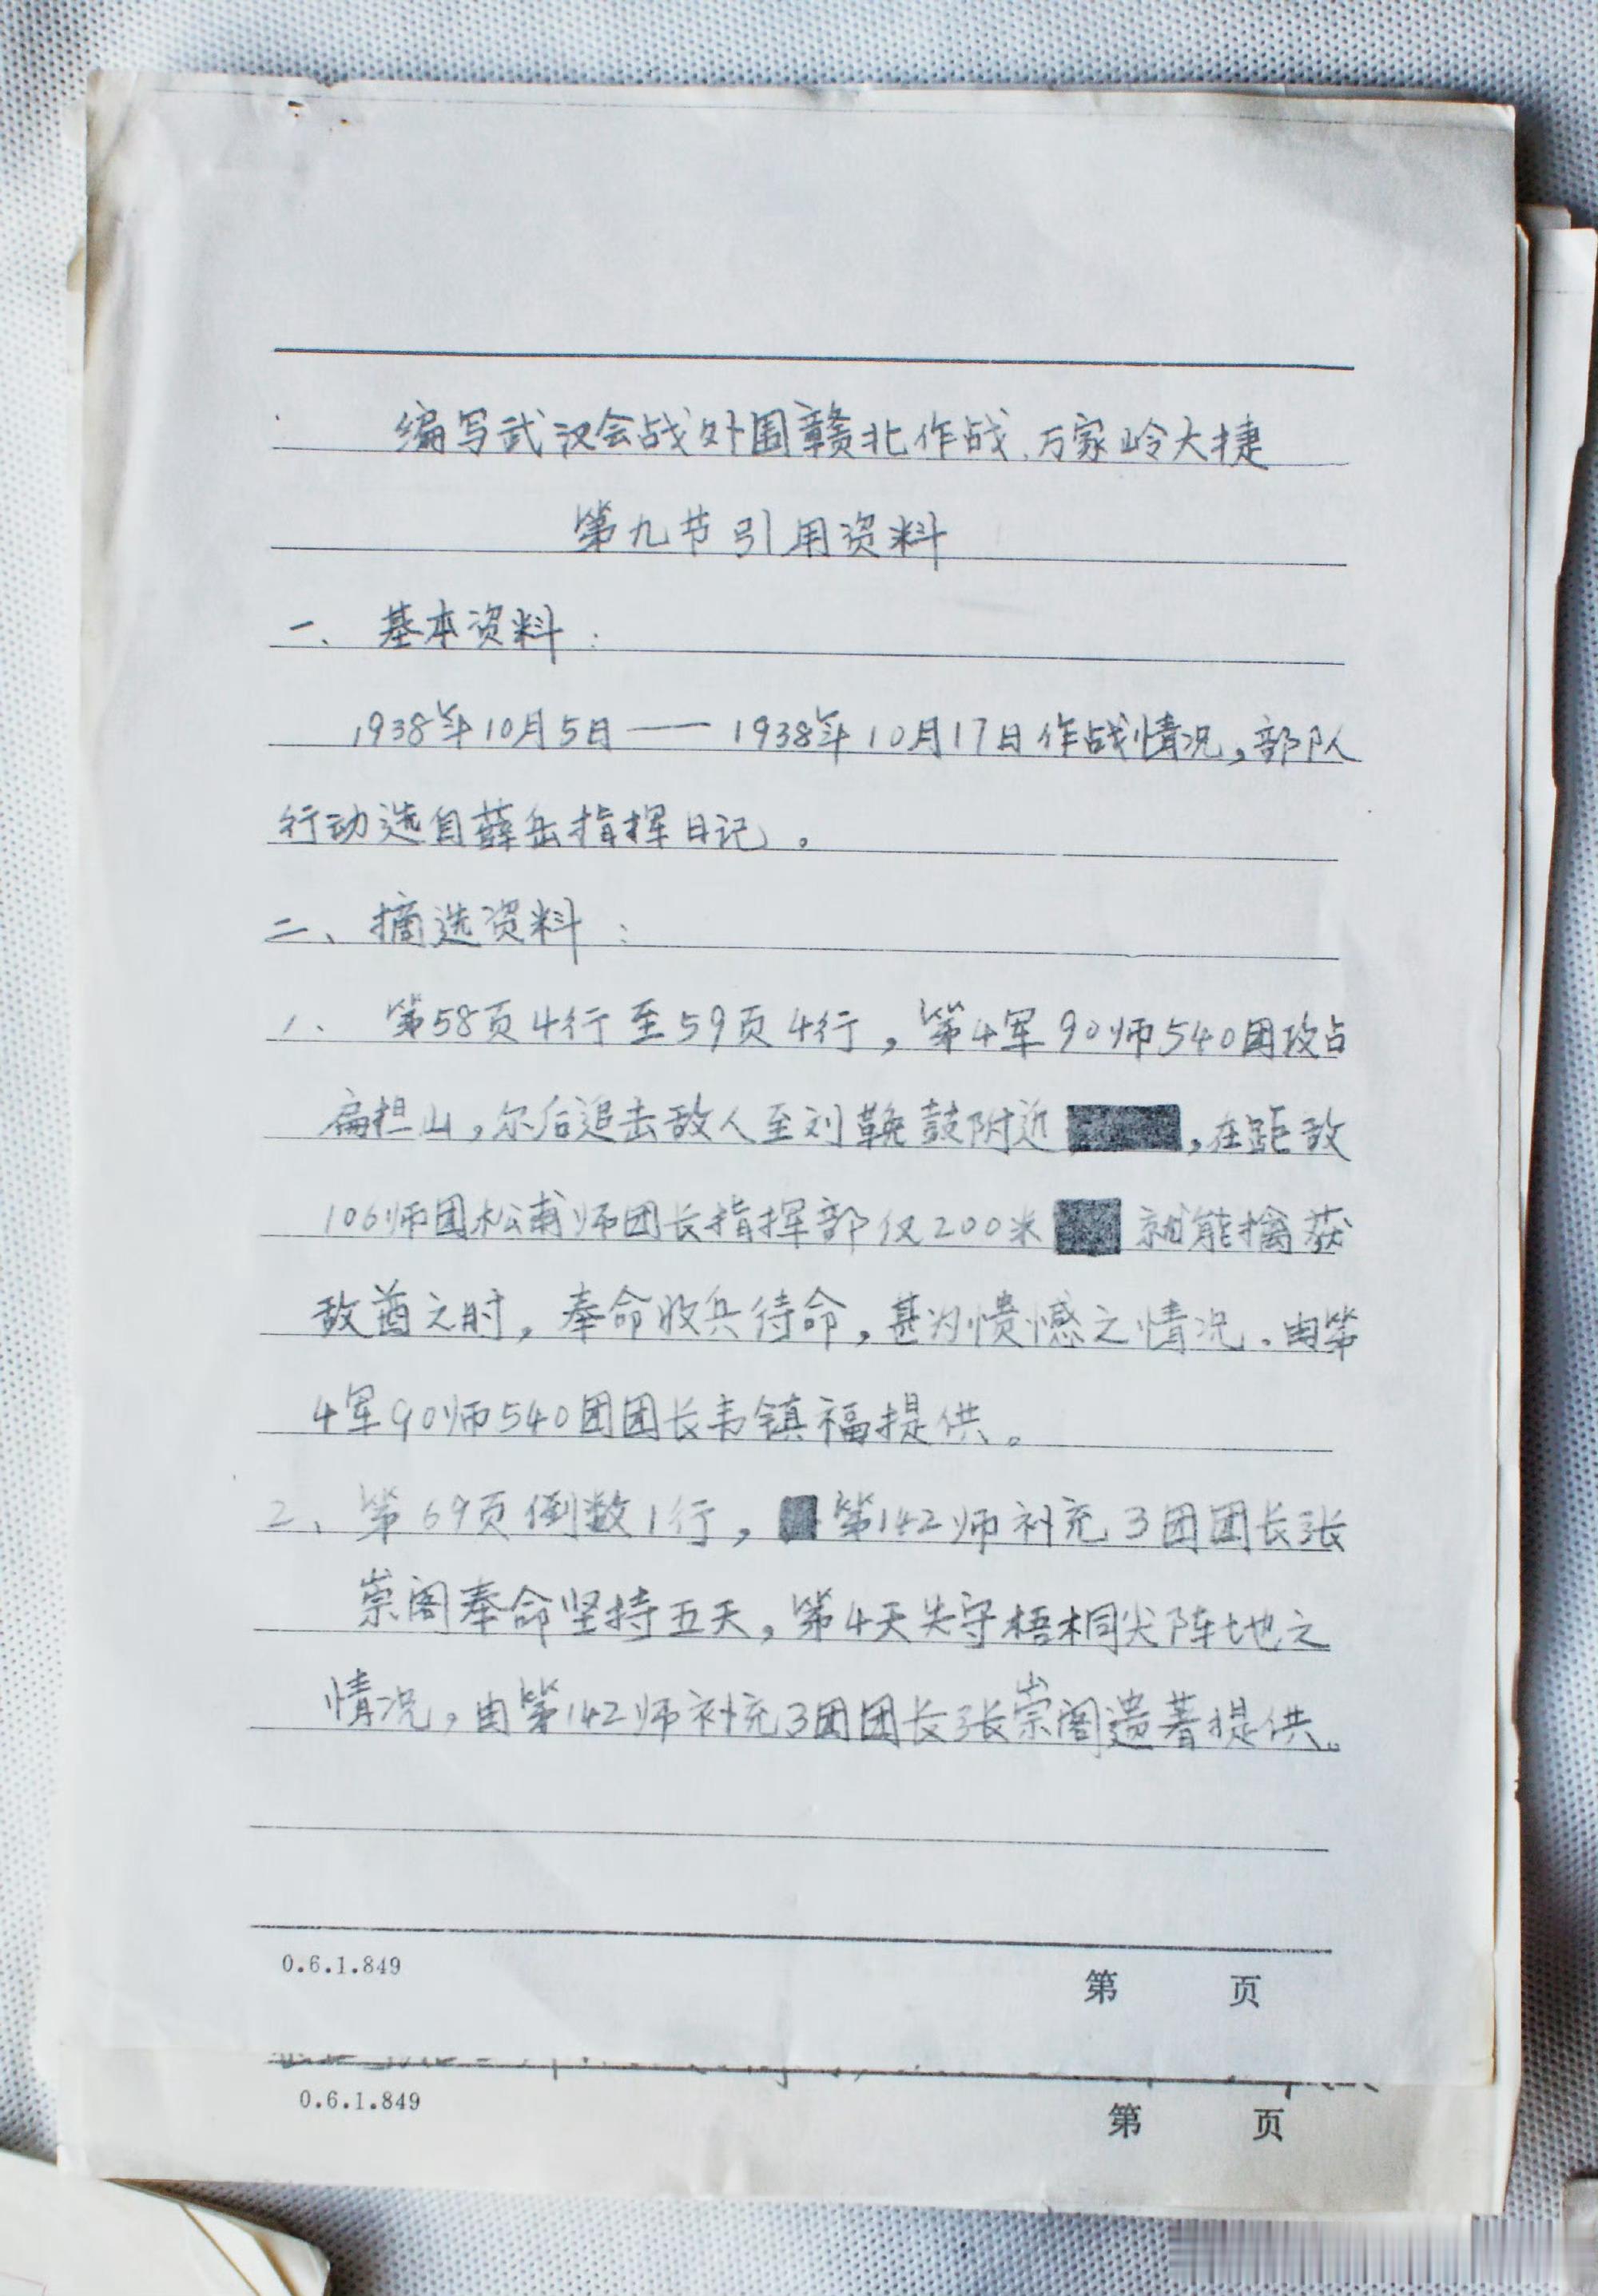 编写武汉会战外围赣北作战、万家岭大捷
第九节引用资料
一、基本资料：
1938年10月5日——1938年10月17日作战情况，部队
行动选自薛岳指挥日记。
二、摘选资料：
1、第58页4行至59页4行，第4军90师540团攻占
扁担山，尔后追击敌人至刘鞔鼓附近，在距敌
106师团松甫师团长指挥部仅200米 就能擒获
敌酋之时，奉命收兵待命，甚为愤憾之情况。由第
4军90师540团团长韦镇福提供。
2、第69页倒数1行，第142师补充3团团长张
崇阁奉命坚持五天，第4天失守梧桐尖阵地之
情况，由第142师补充3团团长张崇阁遗著提供。
0.6.1.849 第 页
0.6.1.849 第 页